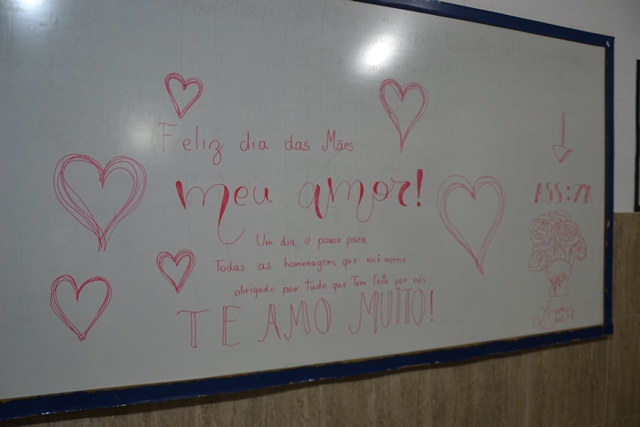 Feliz dia das Mães
meu amor!
Um dia e pouco para
Todas as homenagens, que você merece
obrigado por tudo que Tem feito por nós
TE AMO MUITO!
ASS: